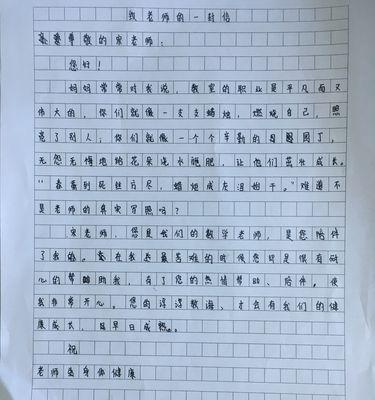 致老师的一封信
尊敬的宋老师：
您好！
妈妈常常对我说，教室的职业是平凡而又
伟大的，你们就像一支支蜡烛，燃烧自己，照
亮了别人；你们就像一个个辛勤的园丁，
无怨无悔地给花朵浇水施肥，让他们茁壮成长。
“春蚕到死丝方尽，蜡炬成灰泪始干。”难道不
是老师的真实写照吗？
宋老师，您是我们的数学老师，是您陪伴
了我的。在我最苦难的时候您却是很有耐
心的帮助我，有了您的热情帮助、陪伴。使
我非常开心。您的谆谆教诲、才会有我们的健
康成长，早日成熟。
祝
老师身体健康